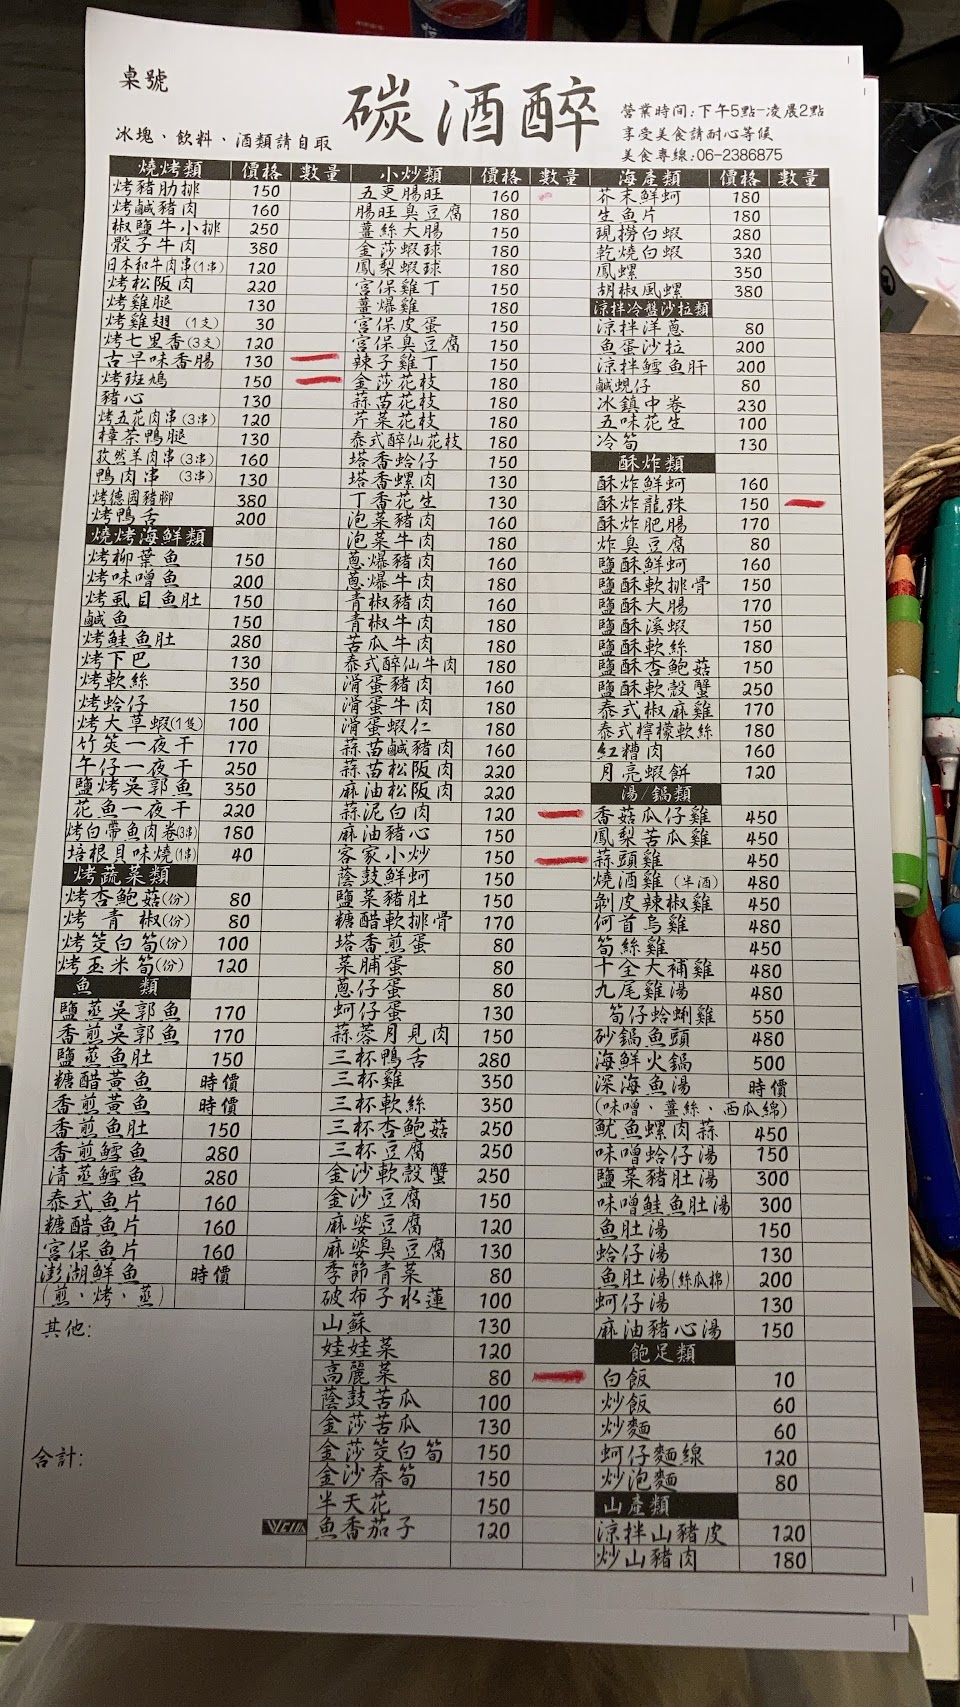 桌號
碳酒醉
營業時間:下午5點-凌晨2點
冰塊、飲料、酒類請自取
享受美食請耐心等候
美食專線:06-2386875
燒烤類 價格 數量
烤豬肋排 150
烤鹹豬肉 160
椒鹽牛小排 250
骰子牛肉 380
日本和牛肉串(1串) 120
烤松阪肉 220
烤雞腿 130
烤雞翅 (1支) 30
烤七里香(3支) 120
古早味香腸 130
烤斑鳩 150
豬心 130
烤五花肉串(3串) 120
樟茶鴨腿 130
孜然羊肉串(3串) 160
鴨肉串 (3串) 130
烤德國豬腳 380
烤鴨舌 200
燒烤海鮮類
烤柳葉魚 150
烤味噌魚 200
烤虱目魚肚 150
鹹魚 150
烤鮭魚肚 280
烤下巴 130
烤軟絲 350
烤蛤仔 150
烤大草蝦(1隻) 100
竹筴一夜干 170
午仔一夜干 250
鹽烤吳郭魚 350
花魚一夜干 220
烤白帶魚肉卷(3串) 180
培根貝味燒(1串) 40
烤蔬菜類
烤杏鮑菇(份) 80
烤青椒(份) 80
烤筊白筍(份) 100
烤玉米筍(份) 120
魚類
鹽蒸吳郭魚 170
香煎吳郭魚 170
鹽蒸魚肚 150
糖醋黃魚 時價
香煎黃魚 時價
香煎魚肚 150
香煎鱈魚 280
清蒸鱈魚 280
泰式魚片 160
糖醋魚片 160
宮保魚片 160
澎湖鮮魚 時價
(煎、烤、蒸)
其他:
合計:
小炒類 價格 數量
五更腸旺 160
腸旺臭豆腐 180
薑絲大腸 150
金莎蝦球 180
鳳梨蝦球 180
宮保雞丁 150
薑爆雞 180
宮保皮蛋 150
宮保臭豆腐 150
辣子雞丁 150
金莎花枝 180
蒜苗花枝 180
芹菜花枝 180
泰式醉仙花枝 180
塔香蛤仔 150
塔香螺肉 130
丁香花生 130
泡菜豬肉 160
泡菜牛肉 180
蔥爆豬肉 160
蔥爆牛肉 180
青椒豬肉 160
青椒牛肉 180
苦瓜牛肉 180
泰式醉仙牛肉 180
滑蛋豬肉 160
滑蛋牛肉 180
滑蛋蝦仁 180
蒜苗鹹豬肉 160
蒜苗松阪肉 220
麻油松阪肉 220
蒜泥白肉 120
麻油豬心 150
客家小炒 150
蔭鼓鮮蚵 150
鹽菜豬肚 150
糖醋軟排骨 170
塔香煎蛋 80
菜脯蛋 80
蔥仔蛋 80
蚵仔蛋 130
蒜蓉月見肉 150
三杯鴨舌 280
三杯雞 350
三杯軟絲 350
三杯杏鮑菇 250
三杯豆腐 250
金沙軟殼蟹 250
金沙豆腐 150
麻婆豆腐 120
麻婆臭豆腐 130
季節青菜 80
破布子水蓮 100
山蘇 130
娃娃菜 120
高麗菜 80
蔭鼓苦瓜 100
金莎苦瓜 130
金莎筊白筍 150
金沙春筍 150
半天花 150
魚香茄子 120
海產類 價格 數量
芥末鮮蚵 180
生魚片 180
現撈白蝦 280
乾燒白蝦 320
鳳螺 350
胡椒風螺 380
涼拌冷盤沙拉類
涼拌洋蔥 80
魚蛋沙拉 200
涼拌鱈魚肝 200
鹹蜆仔 80
冰鎮中卷 230
五味花生 100
冷筍 130
酥炸類
酥炸鮮蚵 160
酥炸龍珠 150
酥炸肥腸 170
炸臭豆腐 80
鹽酥鮮蚵 160
鹽酥軟排骨 150
鹽酥大腸 170
鹽酥溪蝦 150
鹽酥軟絲 180
鹽酥杏鮑菇 150
鹽酥軟殼蟹 250
泰式椒麻雞 170
泰式檸檬軟絲 180
紅糟肉 160
月亮蝦餅 120
湯/鍋類
香菇瓜仔雞 450
鳳梨苦瓜雞 450
蒜頭雞 450
燒酒雞 (半酒) 480
剝皮辣椒雞 450
何首烏雞 480
筍絲雞 450
十全大補雞 480
九尾雞湯 480
筍仔蛤蜊雞 550
砂鍋魚頭 480
海鮮火鍋 500
深海魚湯 時價
(味噌、薑絲、西瓜綿)
魷魚螺肉蒜 450
味噌蛤仔湯 150
鹽菜豬肚湯 300
味噌鮭魚肚湯 300
魚肚湯 150
蛤仔湯 130
魚肚湯(絲瓜棉) 200
蚵仔湯 130
麻油豬心湯 150
飽足類
白飯 10
炒飯 60
炒麵 60
蚵仔麵線 120
炒泡麵 80
山產類
涼拌山豬皮 120
炒山豬肉 180